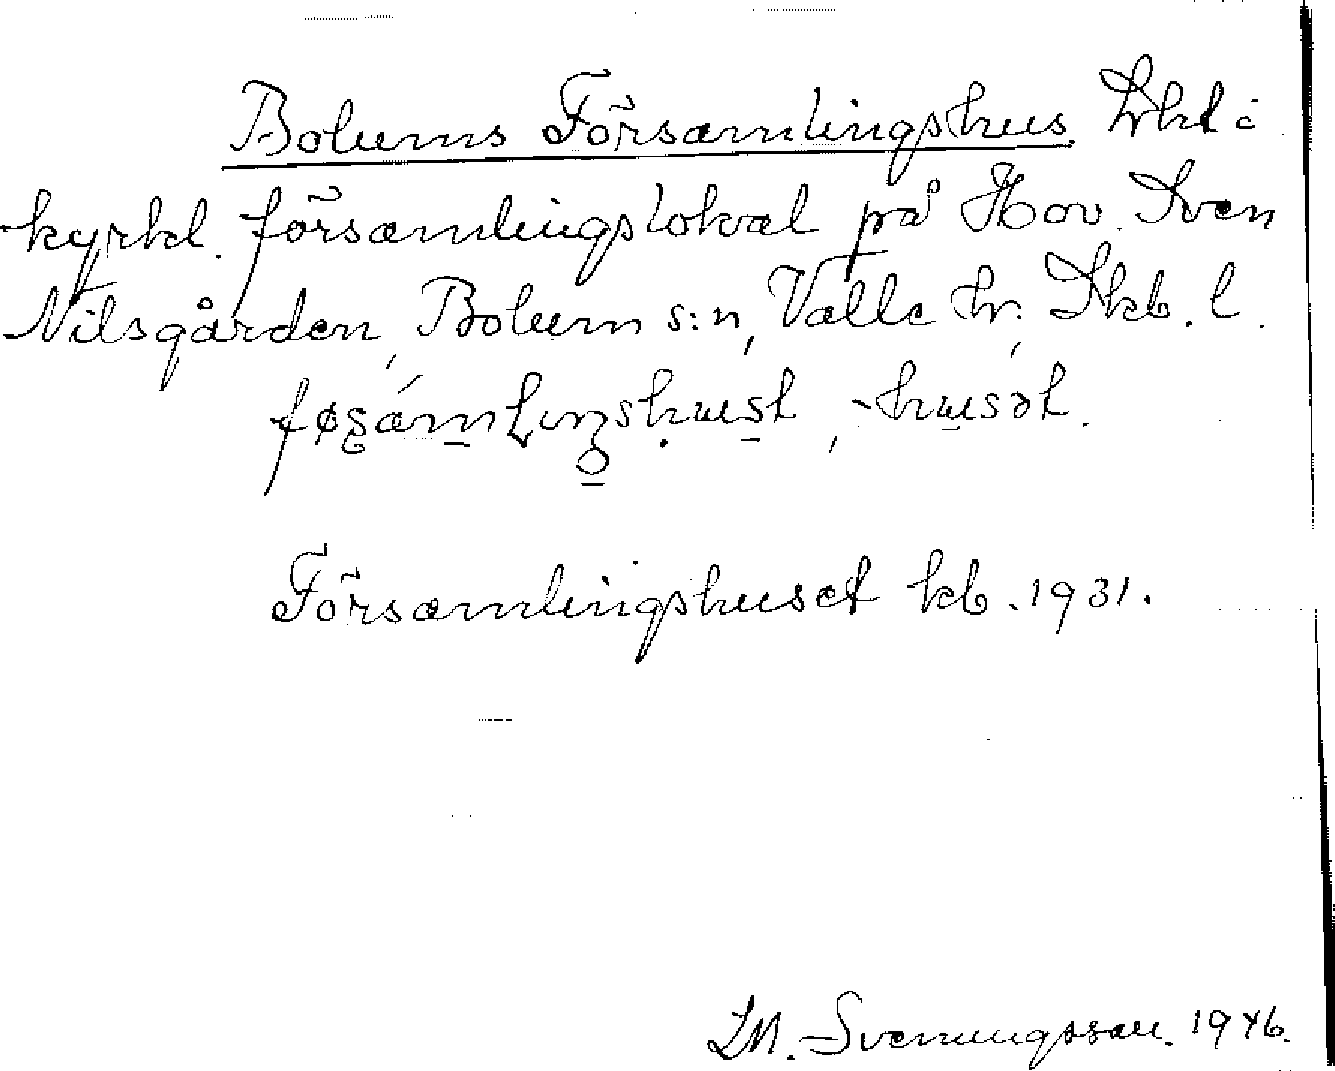 Bolums Församlingshus. Trkt:
kyrkl. församlingslokal på Hov Sven
Nilsgården, Bolum s:n, Valle hr, Skb. l.
Församlingshuset kb. 1931.
L.M. Svenungsson. 1946.